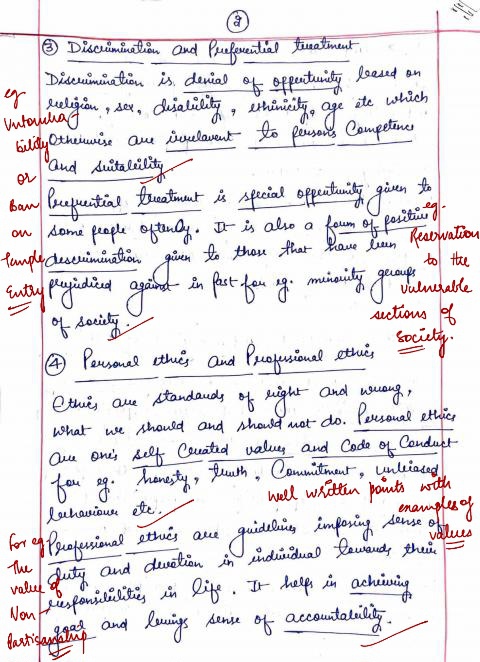 2
③ Discrimination and Preferential treatment
Discrimination is denial of oppertunity based on
religion, sex, disability, ethinicity, age etc which
Otherwise are irrelavent to persons Competence
and suitability.
Prefrential treatment is special oppertunity given to
some people oftenly. It is also a form of positive
descrimination given to those that have been
prejidiced against in past for eg. minority groups
of society.
eg
Untoucha-
bility
or
Ban
on
Temple
Entry
eg.
Reservation
to the
vulnerable
sections of
society.
④ Personal ethics and Professional ethics
Ethics are standards of right and wrong,
what we should and should not do. Personal ethics
are one's self Created values and Code of Conduct
for eg. honesty, truth, Commitment, unbiased
behaviour etc.
well written points with
examples of
values
Professional ethics are guidelines imposing sense of
duty and devotion in individual towards their
responsibilities in life. It helps in achieving
goal and brings sense of accountability.
For eg
The
value of
Non
Partisanship